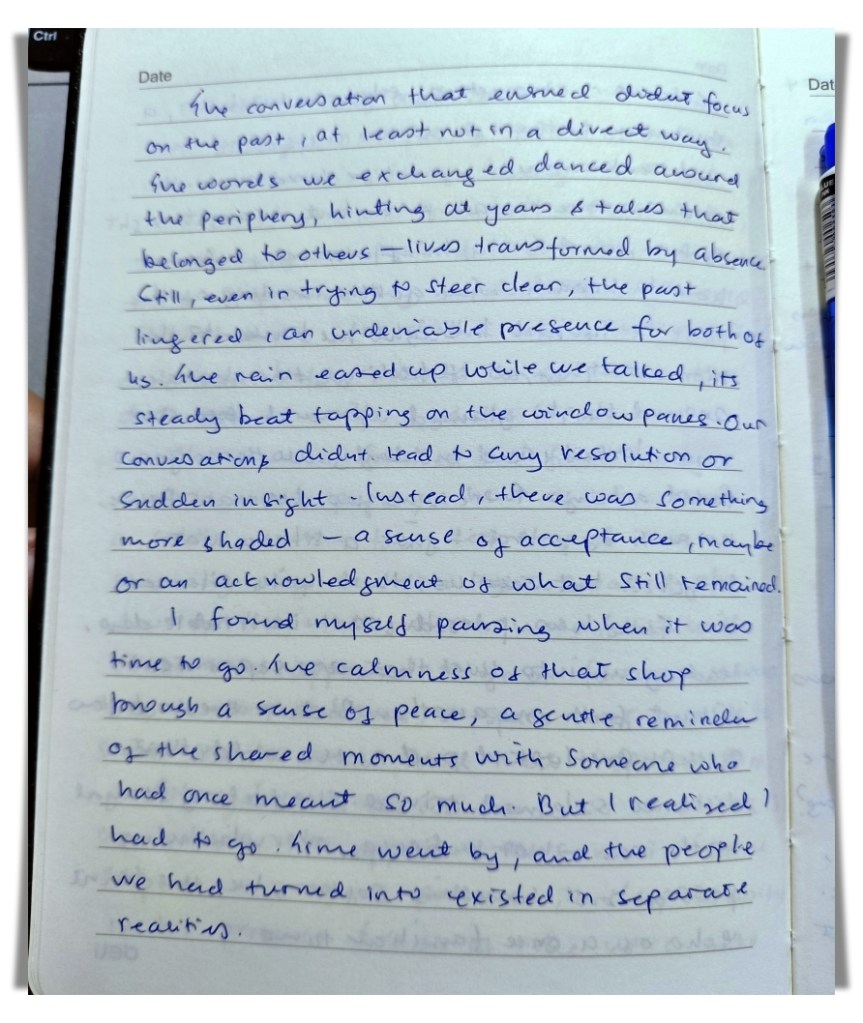 Ctrl
Date
Dat
The conversation that ensued didnt focus
on the past, at least not in a direct way.
The words we exchanged danced around
the periphery, hinting at years & tales that
belonged to others – lives transformed by absence
Still, even in trying to steer clear, the past
lingered, an undeniable presence for both of
us. The rain eased up while we talked, its
steady beat tapping on the window panes. Our
conversations didnt lead to any resolution or
sudden insight - Instead, there was something
more shaded – a sense of acceptance, maybe
or an acknowledgment of what still remained.
I found myself pausing when it was
time to go. The calmness of that shop
brough a sense of peace, a gentle reminder
of the shared moments with someone who
had once meant so much. But I realised I
had to go. Time went by, and the people
we had turned into existed in separate
realities.